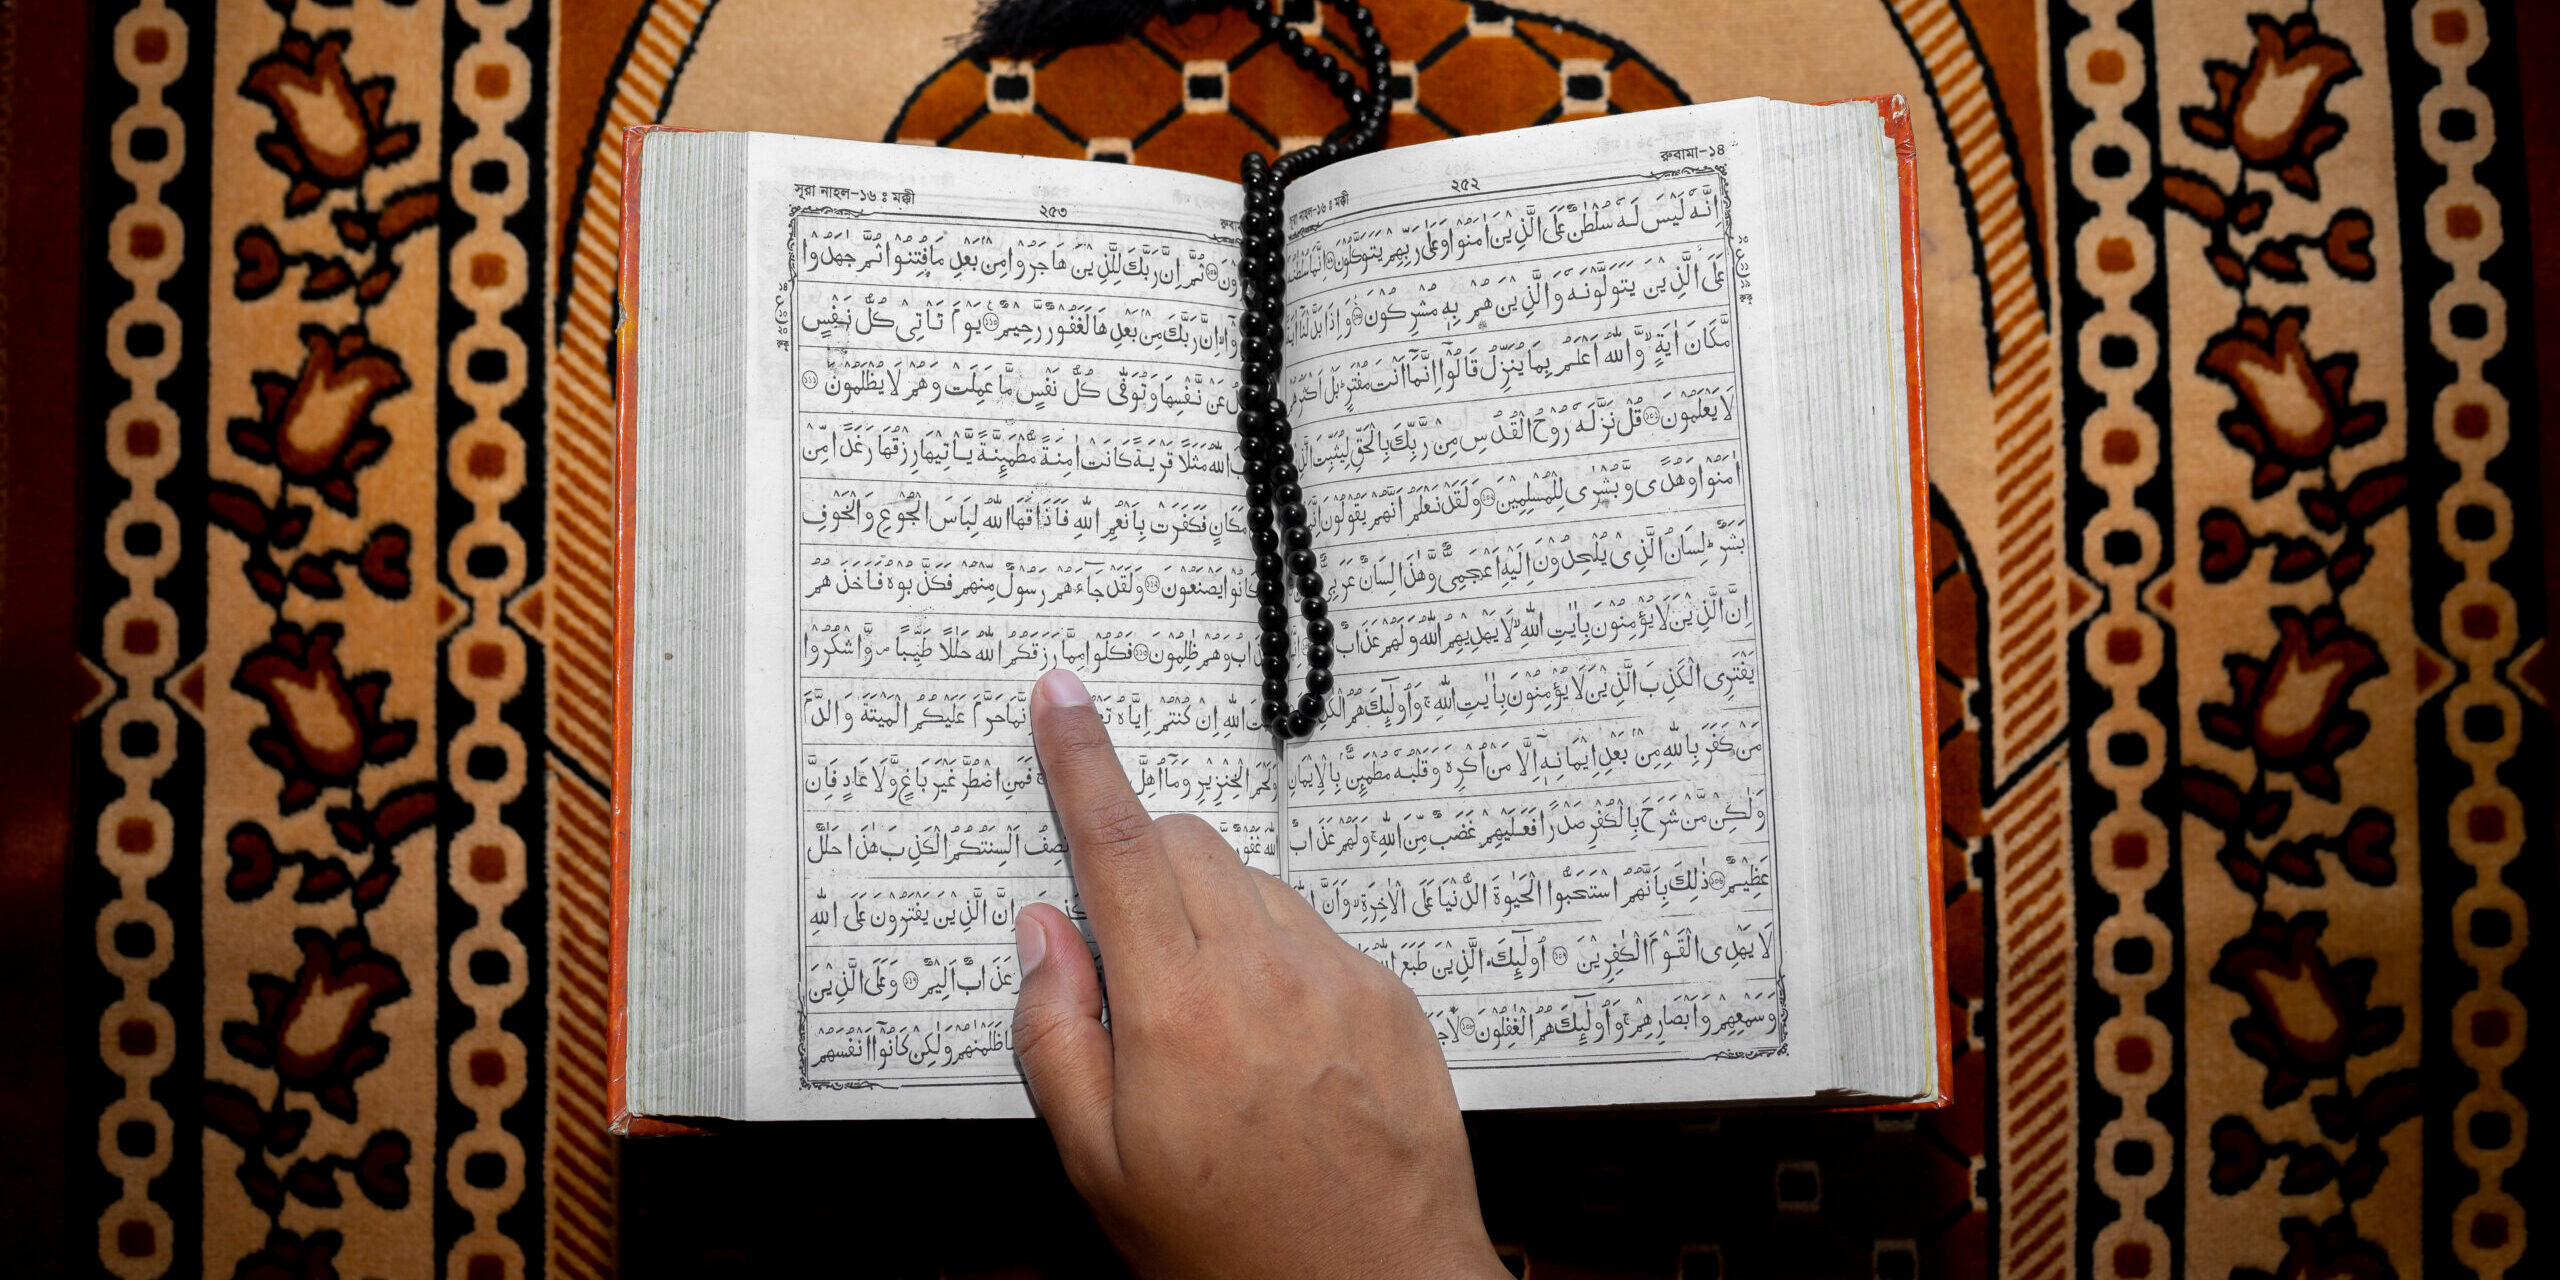 রুবামা-১৪
২৫২
সূরা নাহল-১৬ : মক্কী
اِنَّهٗ لَيْسَ لَهٗ سُلْطٰنٌ عَلَى الَّذِيْنَ اٰمَنُوْا وَعَلٰى رَبِّهِمْ يَتَوَكَّلُوْنَ اِنَّمَا سُلْطٰنُهٗ
عَلَى الَّذِيْنَ يَتَوَلَّوْنَهٗ وَالَّذِيْنَ هُمْ بِهٖ مُشْرِكُوْنَ وَاِذَا بَدَّلْنَاۤ اٰيَةً
مَّكَانَ اٰيَةٍ ۙ وَّاللّٰهُ اَعْلَمُ بِمَا يُنَزِّلُ قَالُوْۤا اِنَّمَاۤ اَنْتَ مُفْتَرٍ ؕ بَلْ اَكْثَرُهُمْ
لَا يَعْلَمُوْنَ قُلْ نَزَّلَهٗ رُوْحُ الْقُدُسِ مِنْ رَّبِّكَ بِالْحَقِّ لِيُثَبِّتَ
اٰمَنُوْا وَهُدًى وَّبُشْرٰى لِلْمُسْلِمِيْنَ وَلَقَدْ نَعْلَمُ اَنَّهُمْ يَقُوْلُوْنَ
بَشَرٌ ؕ لِسَانُ الَّذِيْ يُلْحِدُوْنَ اِلَيْهِ اَعْجَمِيٌّ وَّهٰذَا لِسَانٌ عَرَبِيٌّ
اِنَّ الَّذِيْنَ لَا يُؤْمِنُوْنَ بِاٰيٰتِ اللّٰهِ ۙ لَا يَهْدِيْهِمُ اللّٰهُ وَلَهُمْ عَذَابٌ
يَفْتَرِى الْكَذِبَ الَّذِيْنَ لَا يُؤْمِنُوْنَ بِاٰيٰتِ اللّٰهِ ۚ وَاُولٰٓئِكَ هُمُ
مَنْ كَفَرَ بِاللّٰهِ مِنْۢ بَعْدِ اِيْمَانِهٖۤ اِلَّا مَنْ اُكْرِهَ وَقَلْبُهٗ مُطْمَئِنٌّۢ بِالْاِيْمَانِ
وَلٰكِنْ مَّنْ شَرَحَ بِالْكُفْرِ صَدْرًا فَعَلَيْهِمْ غَضَبٌ مِّنَ اللّٰهِ ۚ وَلَهُمْ عَذَابٌ
عَظِيْمٌ ذٰلِكَ بِاَنَّهُمُ اسْتَحَبُّوا الْحَيٰوةَ الدُّنْيَا عَلَى الْاٰخِرَةِ ۙ وَاَنَّ
لَا يَهْدِى الْقَوْمَ الْكٰفِرِيْنَ اُولٰٓئِكَ الَّذِيْنَ طَبَعَ اللّٰهُ
وَسَمْعِهِمْ وَاَبْصَارِهِمْ ۚ وَاُولٰٓئِكَ هُمُ الْغٰفِلُوْنَ
২৫৩
সূরা নাহল-১৬ : মক্কী
ثُمَّ اِنَّ رَبَّكَ لِلَّذِيْنَ هَاجَرُوْا مِنْۢ بَعْدِ مَا فُتِنُوْا ثُمَّ جٰهَدُوْا
اِنَّ رَبَّكَ مِنْۢ بَعْدِهَا لَغَفُوْرٌ رَّحِيْمٌ يَوْمَ تَاْتِيْ كُلُّ نَفْسٍ
عَنْ نَّفْسِهَا وَتُوَفّٰى كُلُّ نَفْسٍ مَّا عَمِلَتْ وَهُمْ لَا يُظْلَمُوْنَ
اللّٰهُ مَثَلًا قَرْيَةً كَانَتْ اٰمِنَةً مُّطْمَئِنَّةً يَّاْتِيْهَا رِزْقُهَا رَغَدًا مِّنْ
مَكَانٍ فَكَفَرَتْ بِاَنْعُمِ اللّٰهِ فَاَذَاقَهَا اللّٰهُ لِبَاسَ الْجُوْعِ وَالْخَوْفِ
كَانُوْا يَصْنَعُوْنَ وَلَقَدْ جَآءَهُمْ رَسُوْلٌ مِّنْهُمْ فَكَذَّبُوْهُ فَاَخَذَهُمُ
وَهُمْ ظٰلِمُوْنَ فَكُلُوْا مِمَّا رَزَقَكُمُ اللّٰهُ حَلٰلًا طَيِّبًا وَّاشْكُرُوْا
اللّٰهِ اِنْ كُنْتُمْ اِيَّاهُ حَرَّمَ عَلَيْكُمُ الْمَيْتَةَ وَالدَّمَ
وَلَحْمَ الْخِنْزِيْرِ وَمَاۤ اُهِلَّ فَمَنِ اضْطُرَّ غَيْرَ بَاغٍ وَّلَا عَادٍ فَاِنَّ
اللّٰهَ اَلْسِنَتُكُمُ الْكَذِبَ هٰذَا حَلٰلٌ
اِنَّ الَّذِيْنَ يَفْتَرُوْنَ عَلَى اللّٰهِ
عَذَابٌ اَلِيْمٌ وَعَلَى الَّذِيْنَ
ظَلَمْنٰهُمْ وَلٰكِنْ كَانُوْۤا اَنْفُسَهُمْ